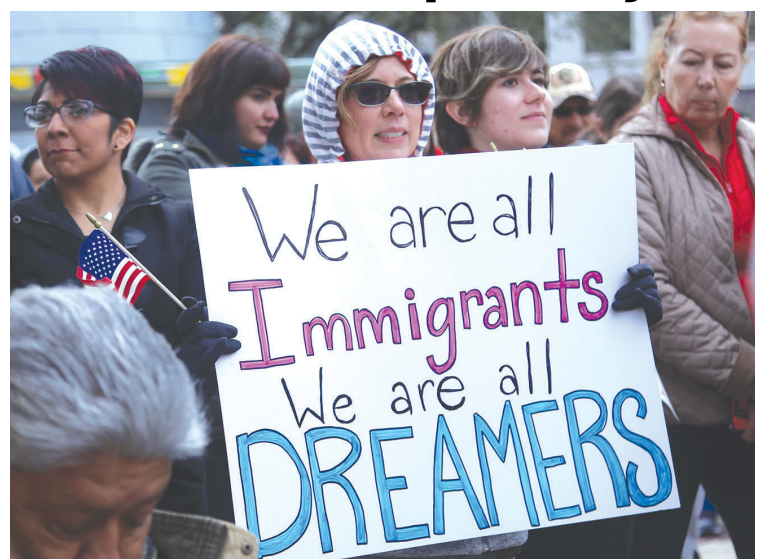 We are all
Immigrants
We are all
DREAMERS